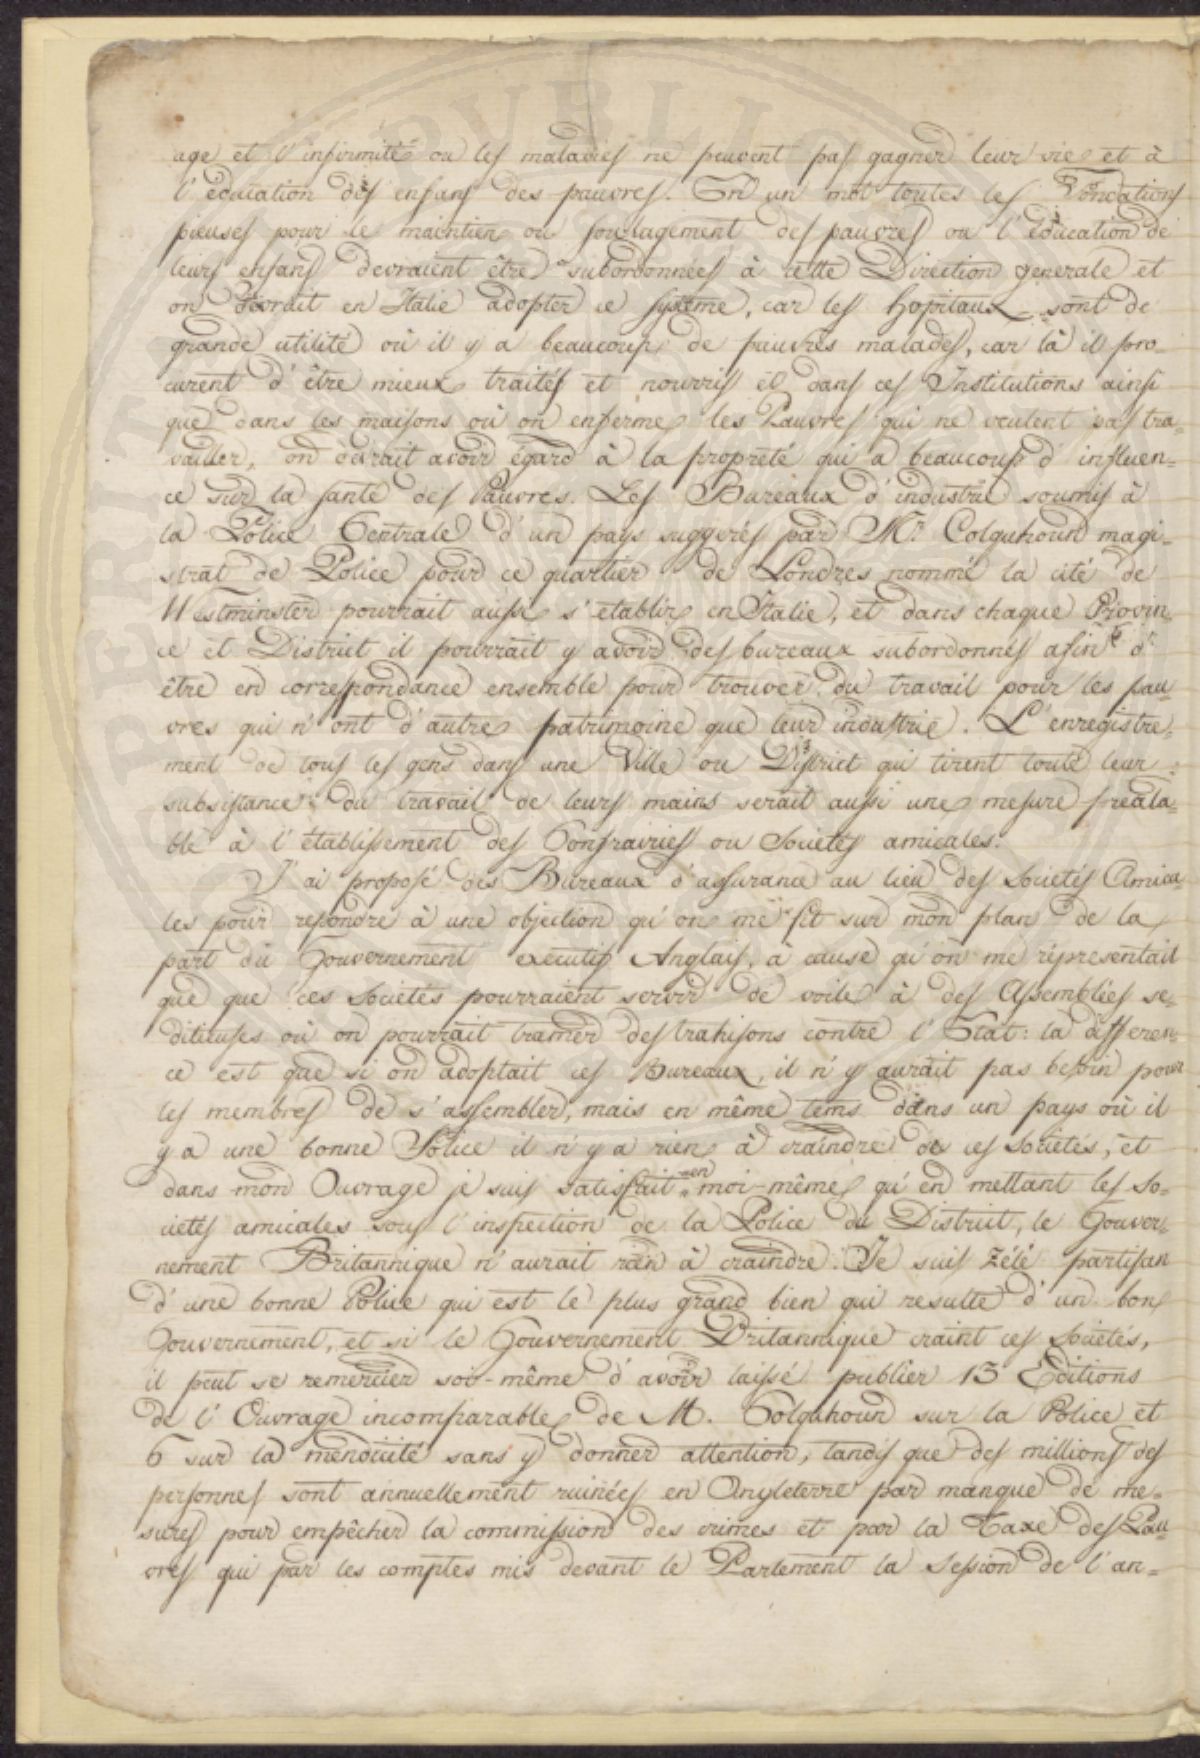 age et l'infirmité ou les maladies ne peuvent pas gagner leur vie et à
l'education des enfans des pauvres. En un mot toutes les Fondations
pieuses pour le maintien ou soulagement des pauvres ou l'éducation de
leurs enfans devraient être subordonnées à cette Direction generale et
on devrait en Italie adopter ce systeme, car les hopitaux sont de
grande utilité où il y a beaucoup de pauvres malades, car là il pro-
curent d'être mieux traités et nourris et dans ces Institutions ainsi
que dans les maisons où on enferme les Pauvres qui ne veulent pas tra-
vailler, on devrait avoir égard à la propreté qui a beaucoup d'influen-
ce sur la santé des Pauvres. Les Bureaux d'industrie soumis à
la Police Centrale d'un pays suggerés par Mr. Colquhoun magi-
strat de Police pour ce quartier de Londres nommé la cité de
Westminster pourrait aussi s'etablir en Italie, et dans chaque Provin-
ce et District il pourrait y avoir des bureaux subordonnés afin d'
être en correspondance ensemble pour trouver du travail pour les pau-
vres qui n'ont d'autre patrimoine que leur industrie. L'enregistre-
ment de tous les gens dans une Ville ou District qui tirent toute leur
subsistance du travail de leurs mains serait aussi une mesure preala-
ble à l'etablissement des Confrairies ou Societés amicales.
J'ai proposé des Bureaux d'assurance au lieu des Societés Amica-
les pour repondre à une objection qu'on me fit sur mon plan de la
part du Gouvernement executif Anglais, à cause qu'on me répresentait
que que ces Societés pourraient servir de voile à des Assemblées se-
ditieuses où on pourrait tramer des trahisons contre l'Etat: la differen-
ce est que si on adoptait ces Bureaux, il n'y aurait pas besoin pour
les membres de s'assembler, mais en même tems dans un pays où il
y a une bonne Police il n'y a rien à craindre de ces Societés, et
dans mon Ouvrage je suis satisfait en moi-même qu'en mettant les So-
cietés amicales sous l'inspection de la Police du District, le Gouver-
nement Britannique n'aurait rien à craindre. Je suis zélé partisan
d'une bonne Police qui est le plus grand bien qui resulte d'un bon
Gouvernement, et si le Gouvernement Britannique craint ces Societés,
il peut se remercier soi-même d'avoir laissé publier 13 Editions
de l'Ouvrage incomparable de M. Colquhoun sur la Police et
6 sur la mendicité sans y donner attention, tandis que des millions des
personnes sont annuellement ruinées en Angleterre par manque de me-
sures pour empêcher la commission des crimes et par la Taxe des Pau-
vres qui par les comptes mis devant le Parlement la Session de l'an-